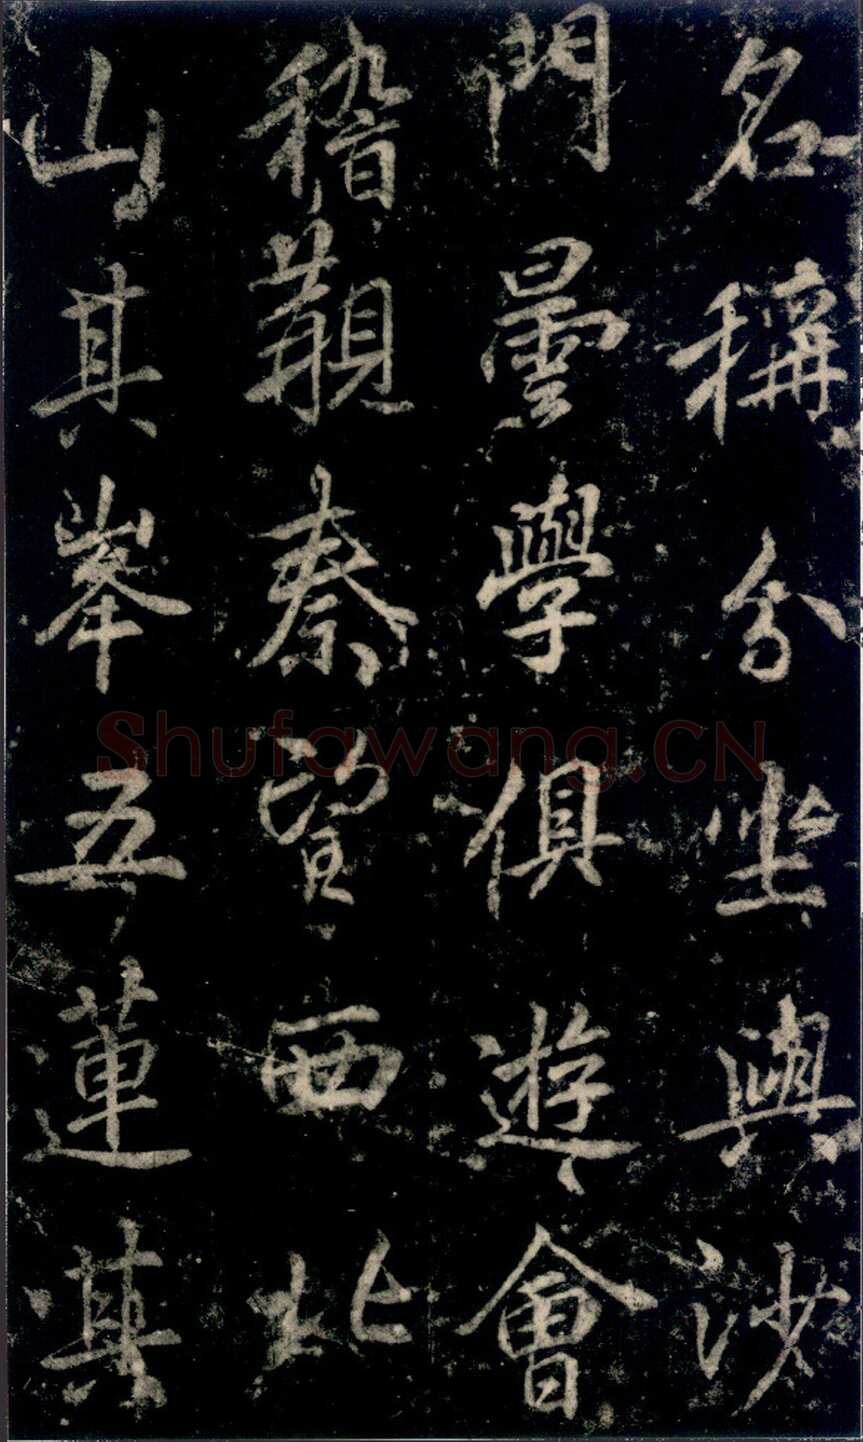 名稱分坐與沙
門曇學俱遊會
稽覯秦望西北
山其峯五蓮其
Shufawang.CN